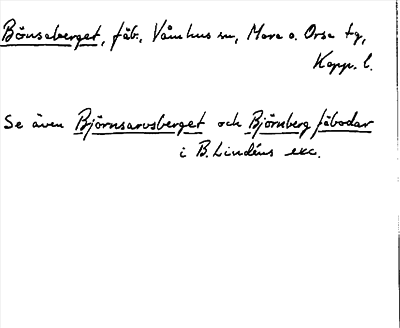 Bönsaberget, fäb., Våmhus sn, Mora o. Orsa tg,
Kopp. l.
Se även Björnsarvsberget och Björnberg fäbodar
i B. Lindéns exc.